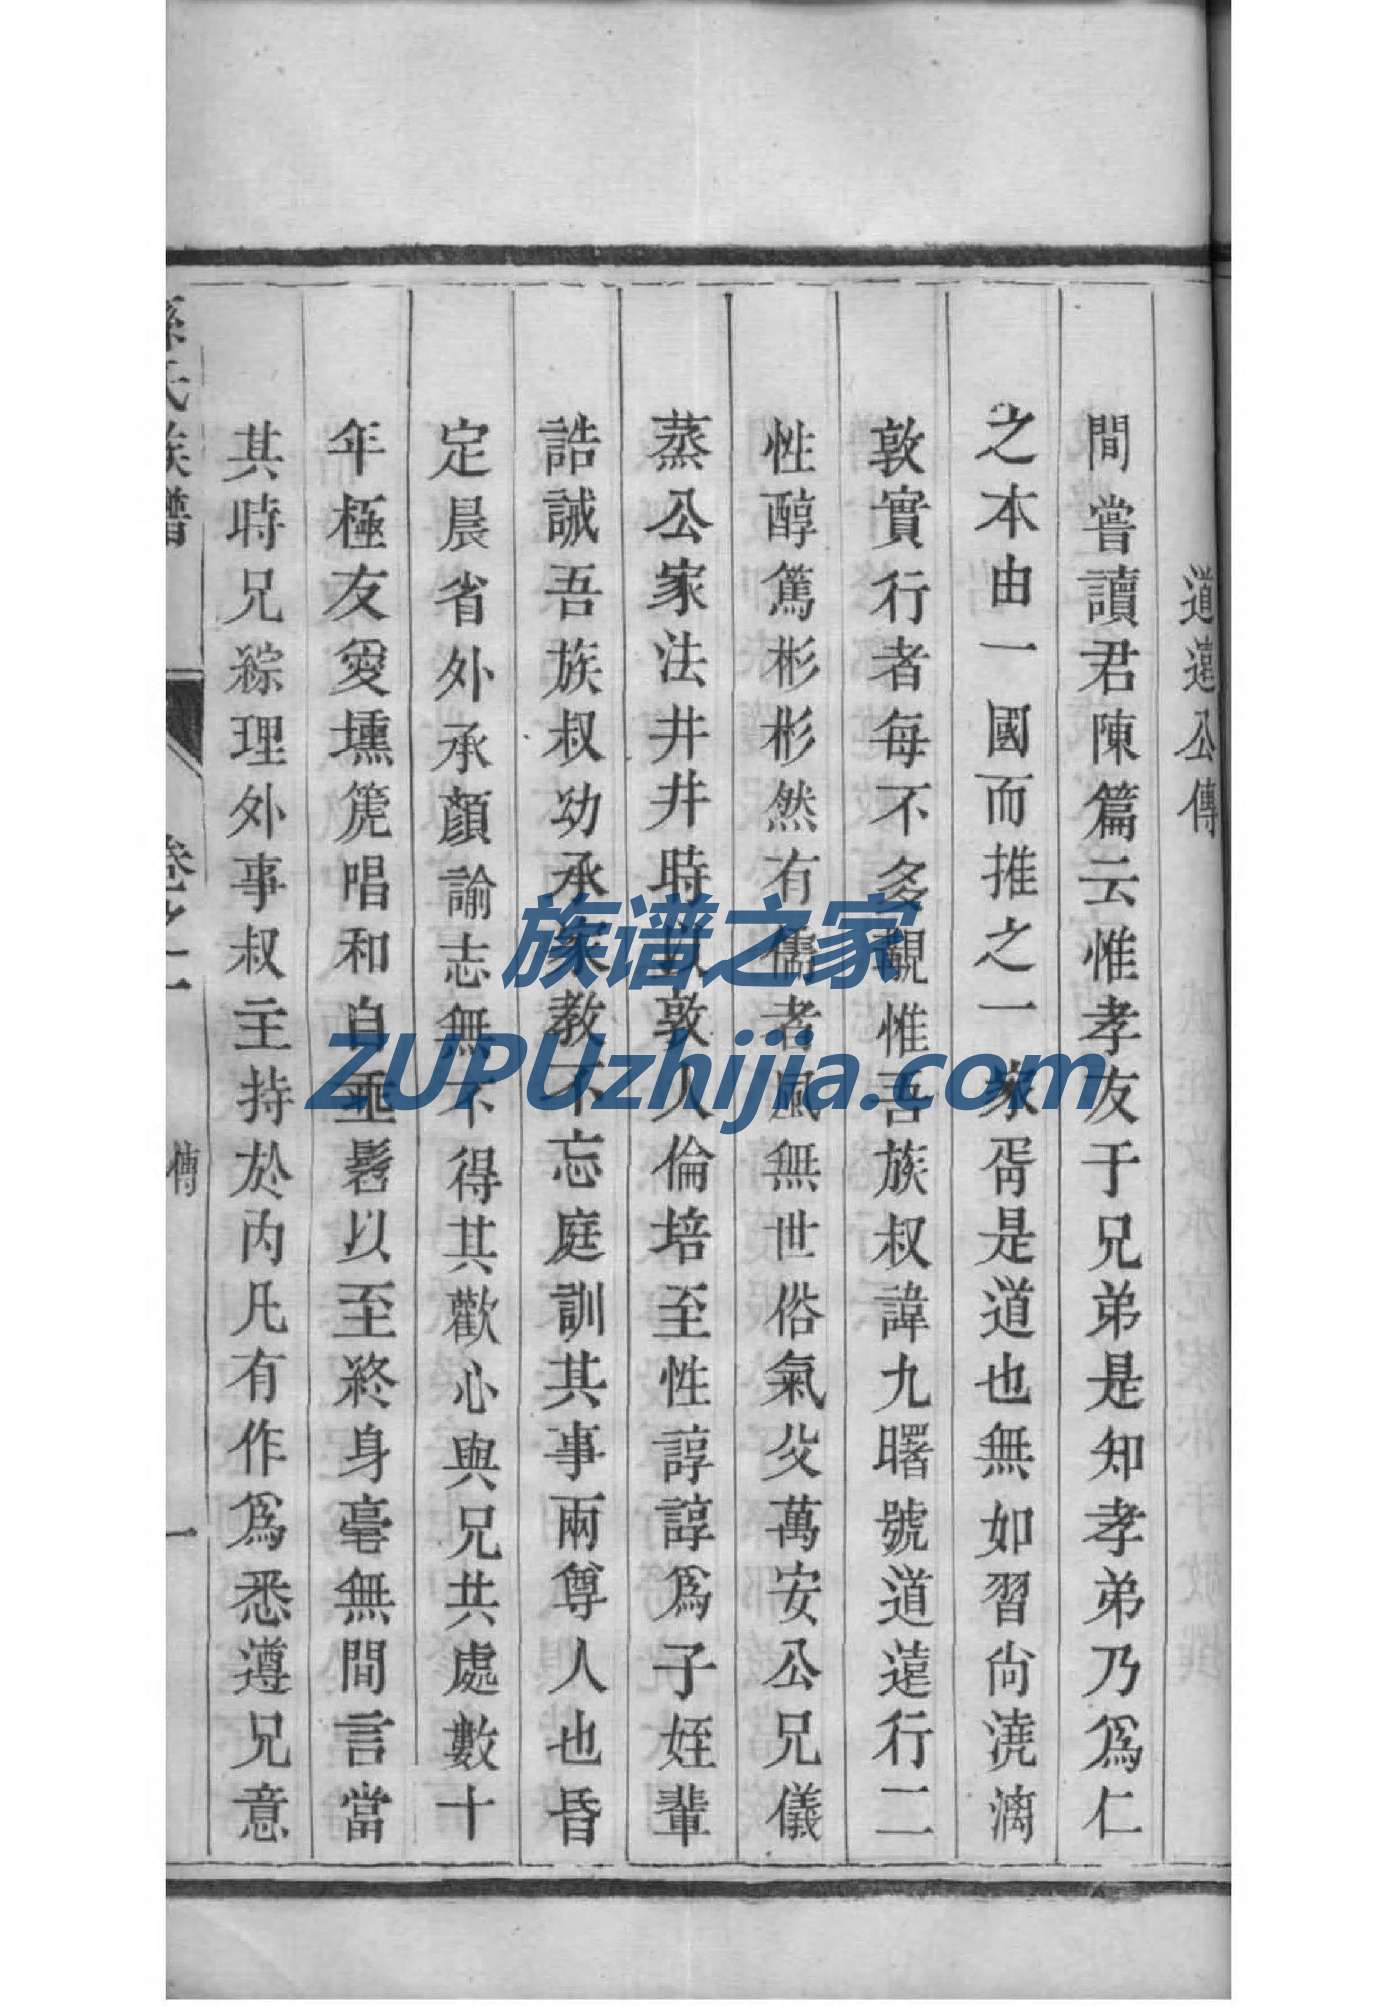 道遠公傳
間嘗讀君陳篇云惟孝友于兄弟是知孝弟乃爲仁
之本由一國而推之一家胥是道也無如習尙澆漓
敦實行者每不多覯惟吾族叔諱九曙號道遠行二
性醇篤彬彬然有儒者風無世俗氣父萬安公兄儀
蒸公家法井井時以敦人倫培至性諄諄爲子姪輩
誥誡吾族叔幼承家教不忘庭訓其事兩尊人也昏
定晨省外承顏諭志無不得其歡心與兄共處數十
年極友愛壎篪唱和自垂髫以至終身毫無間言當
其時兄綜理外事叔主持於內凡有作爲悉遵兄意
孫氏族譜
卷之一
傳
一
族谱之家
ZUPUzhijia.com